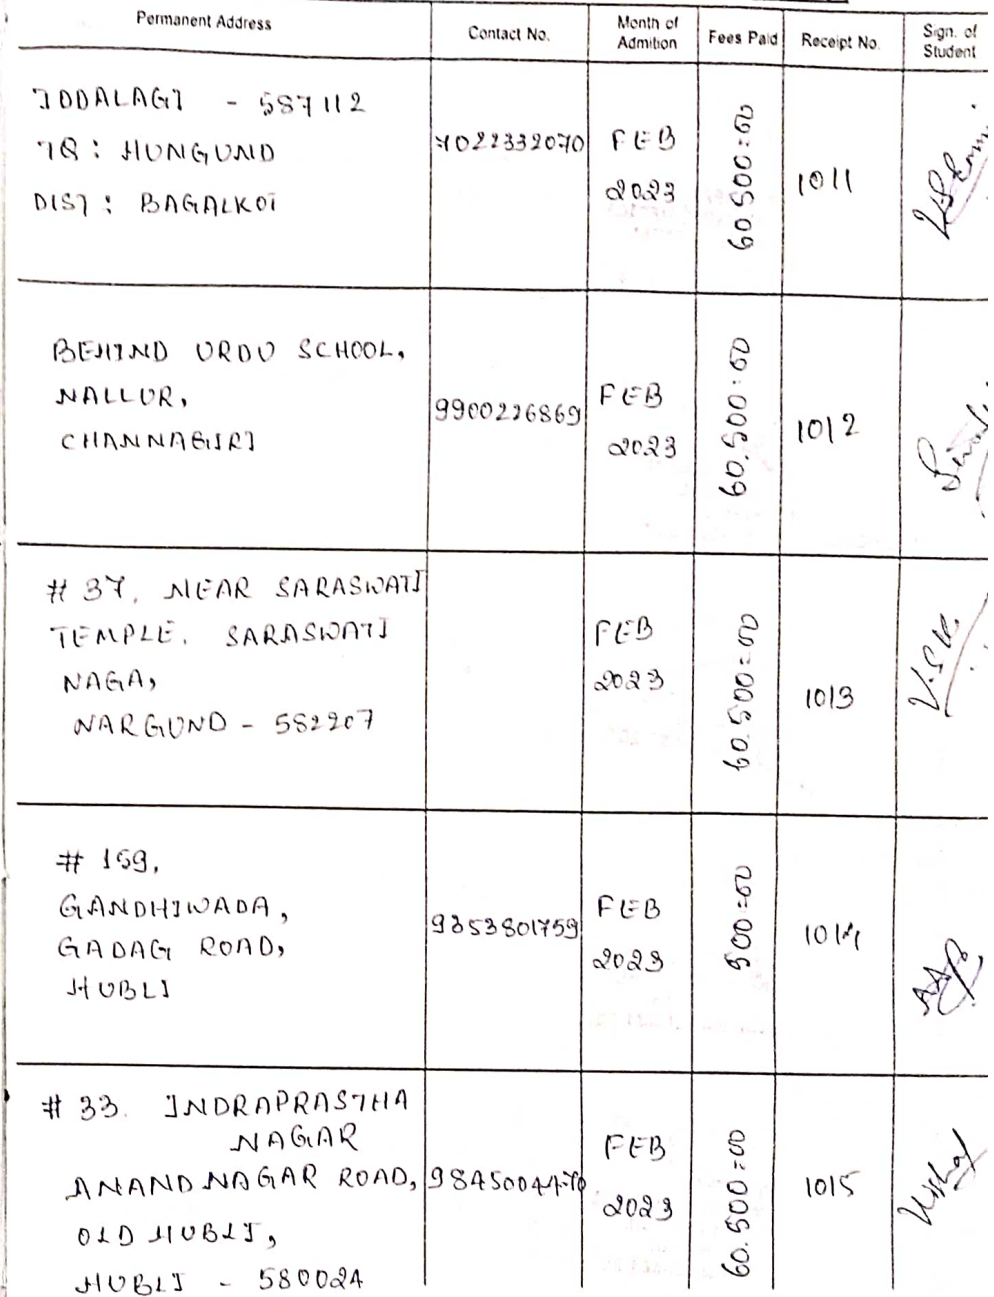 Permanent Address
Contact No.
Month of
Admition
Fees Paid
Receipt No.
Sign. of
Student
IDDALAGI - 587112
TQ : HUNGUND
DIST : BAGALKOT
7022332070
FEB
2023
60.500=00
1011
BEHIND URDU SCHOOL,
NALLUR,
CHANNAGIRI
9900226869
FEB
2023
60.500=00
1012
# 37, NEAR SARASWATI
TEMPLE, SARASWATI
NAGA,
NARGUND - 582207
FEB
2023
60.500=00
1013
V.S.K.
# 159,
GANDHIWADA,
GADAG ROAD,
HUBLI
9353801759
FEB
2023
500=00
1014
# 33. INDRAPRASTHA
NAGAR
ANAND NAGAR ROAD,
OLD HUBLI,
HUBLI - 580024
FEB
2023
60.500=00
1015
Vishal